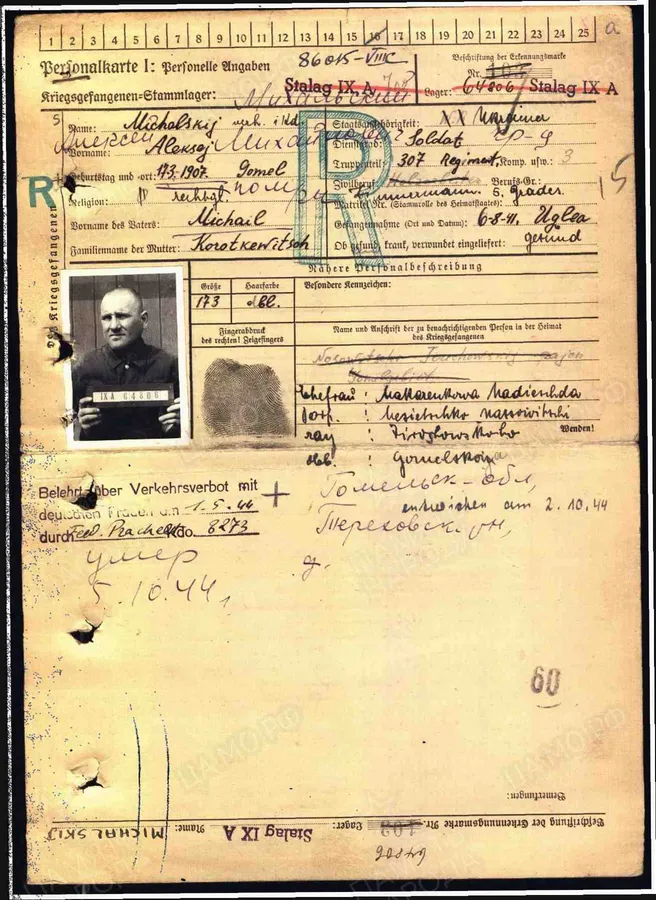 1 2 3 4 5 6 7 8 9 10 11 12 13 14 15 16 17 18 19 20 21 22 23 24 25 a
Personalkarte I: Personelle Angaben 86015-VIIIC Beschriftung der Erkennungsmarke
Nr.
Kriegsgefangenen-Stammlager: Stalag IX A Lager: 64806 Stalag IX A
Михальский
Name: Michalskij verh. 1 Kd. Staatsangehörigkeit: XX Ukraina
Алексей
Vorname: Aleksej Dienstgrad: Soldat
Truppenteil: 307 Regiment, Komp. usw.: 3
Geburtstag und -ort: 17.3.1907. Gomel Zivilberuf: Berufs-Gr.:
Religion: rechtgl. Zimmermann. Matrikel Nr. (Stammrolle des Heimatstaates):
Vorname des Vaters: Michail Gefangennahme (Ort und Datum): 6-8-41. Uglea
Familienname der Mutter: Korotkewitsch Ob gesund, krank, verwundet eingeliefert: gesund
R
R
15
Des Kriegsgefangenen
Nähere Personalbeschreibung
Größe Haarfarbe Besondere Kennzeichen:
173 dbl.
Fingerabdruck
des rechten! Zeigefingers
Name und Anschrift der zu benachrichtigenden Person in der Heimat
des Kriegsgefangenen
IXA 64806
Ehefrau : Makarenkowa Nadieshda
Wenden!
ray :
obl. : Gomelskoja
Belehrt über Verkehrsverbot mit
deutschen Frauen am 1.5.44
durch Kdo. 8273
+
Гомельск-обл,
entwichen am 2.10.44
Тереховск. рн,
д.
умер
5.10.44 г,
60
Bemerkungen:
Beschriftung der Erkennungsmarke Nr. 102 Lager: Stalag IX A Name: MICHALSKIJ
64806
ЦАМО РФ